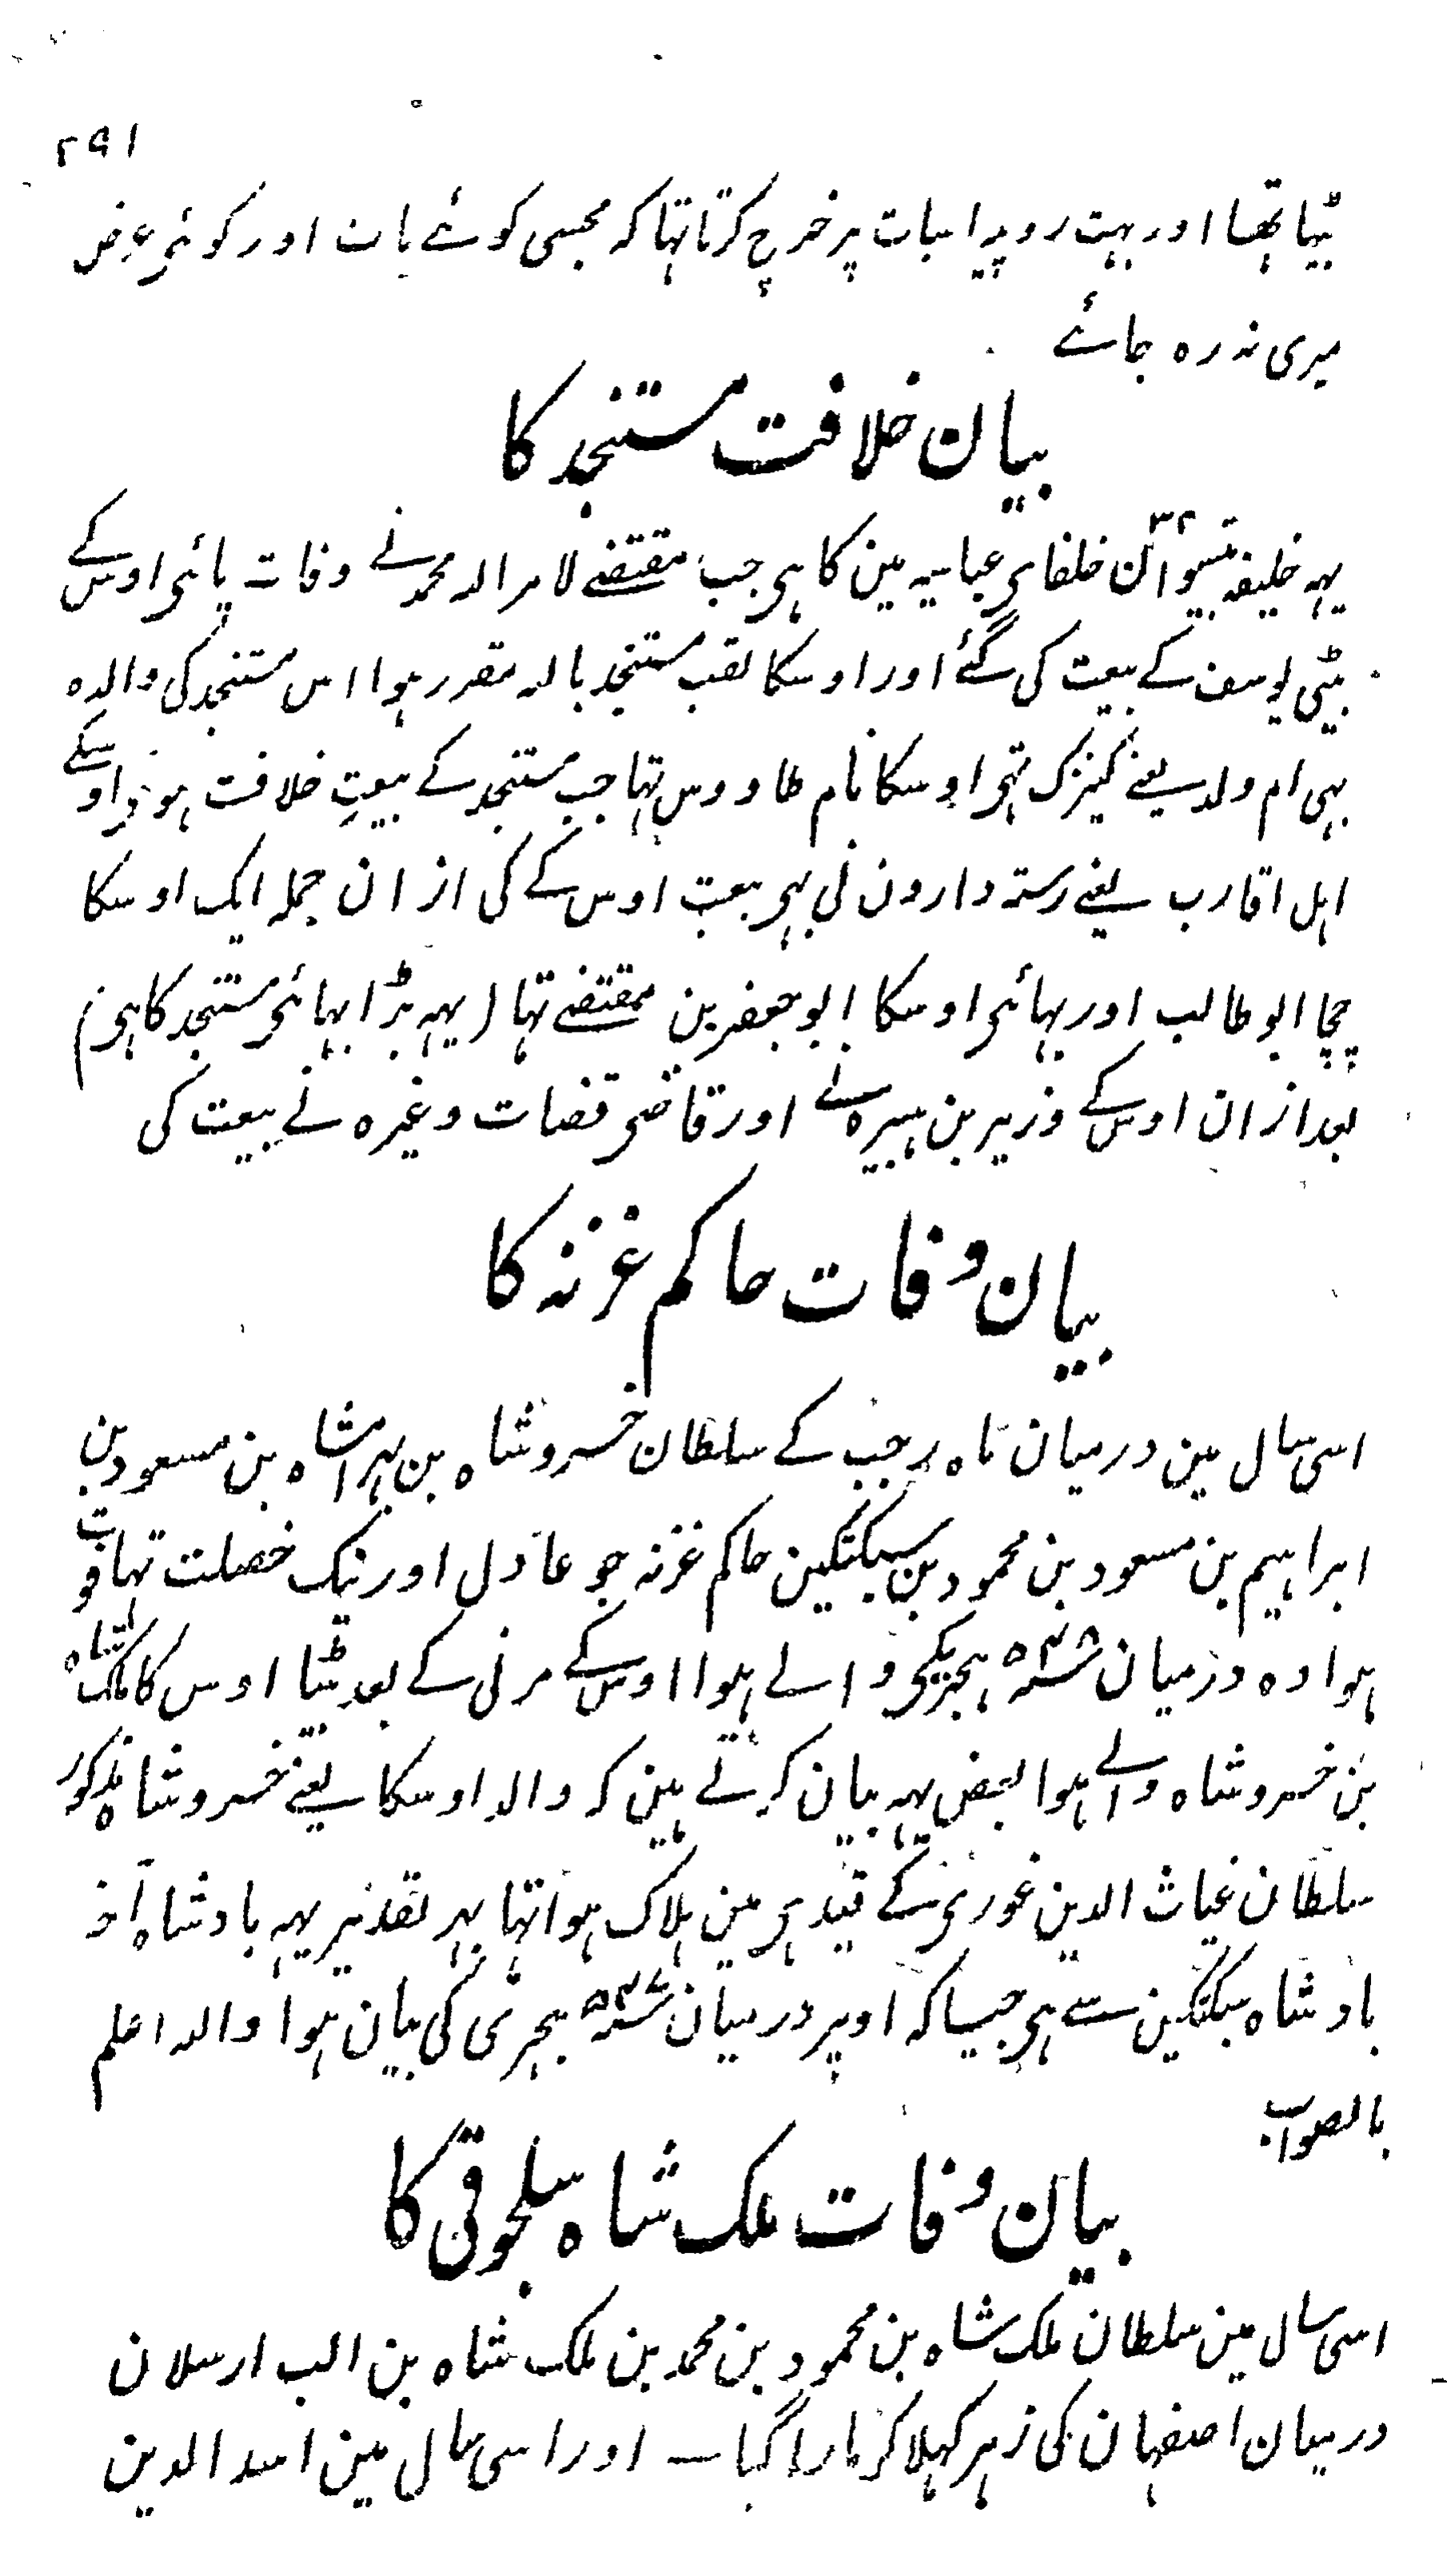 ۲۹۱
بیٹھا تھا اور بہت روپیہ اسبات پر خرچ کرتا تہا کہ مجسی کوئے بات اور کوئی عرض
میری نہ رہ جائے
بیان خلافت مستنجد کا
یہہ خلیفہ بتیسوان ۳۲ خلفای عباسیہ مین کا ہی جب مقتفے لامر الله محمد نے وفات پائی اوس کے
بیٹی یوسف کے بیعت کی گئے اور اوسکا لقب مستنجد بالله مقرر ہوا اس مستنجد کی والدہ
بہی ام ولد یعنے کنیزک تہی اوسکا نام طاووس تہا جب مستنجد کے بیعتِ خلافت ہوئی اوسکے
اہل اقارب یعنے رستہ دارون نی بہی بیعت اوس کے کی از ان جملہ ایک اوسکا
چچا ابو طالب اور بہائی اوسکا ابو جعفر بن مقتفے تہا (یہہ بڑا بہائی مستنجد کا ہی)
بعد ازان اوس کے وزیر بن ہبیرہ نے اور قاضی قضات وغیرہ نے بیعت کی
بیان وفات حاکم غزنہ کا
اسی سال مین درمیان ماہ رجب کے سلطان خسرو شاہ بن بہرامشاہ بن مسعود بن
ابراہیم بن مسعود بن محمود بن سبکتکین حاکم غزنہ جو عادل اور نیک خصلت تہا فوت
ہوا وہ درمیان ۵۴۸ ہجریکی والے ہوا اوس کے مرنی کے بعد بیٹا اوس کا ملکشاہ
بن خسرو شاہ والے ہوا بعض یہہ بیان کرتے ہین کہ والد اوسکا یعنے خسرو شاہ مذکور
سلطان غیاث الدین غوری کے قید ہی مین ہلاک ہوا تہا بہر تقدیر یہہ بادشاہ آخر
بادشاہ سبکتکین سے ہی جیسا کہ اوپر درمیان ۵۴۷ ہجری کی بیان ہوا والله اعلم
بالصواب
بیان وفات ملک شاہ سلجوقی کا
اسی سال مین سلطان ملک شاہ بن محمود بن محمد بن ملک شاہ بن الب ارسلان
درمیان اصفہان کی زہر کہلا کر مارا گیا — اور اسی سال مین اسد الدین